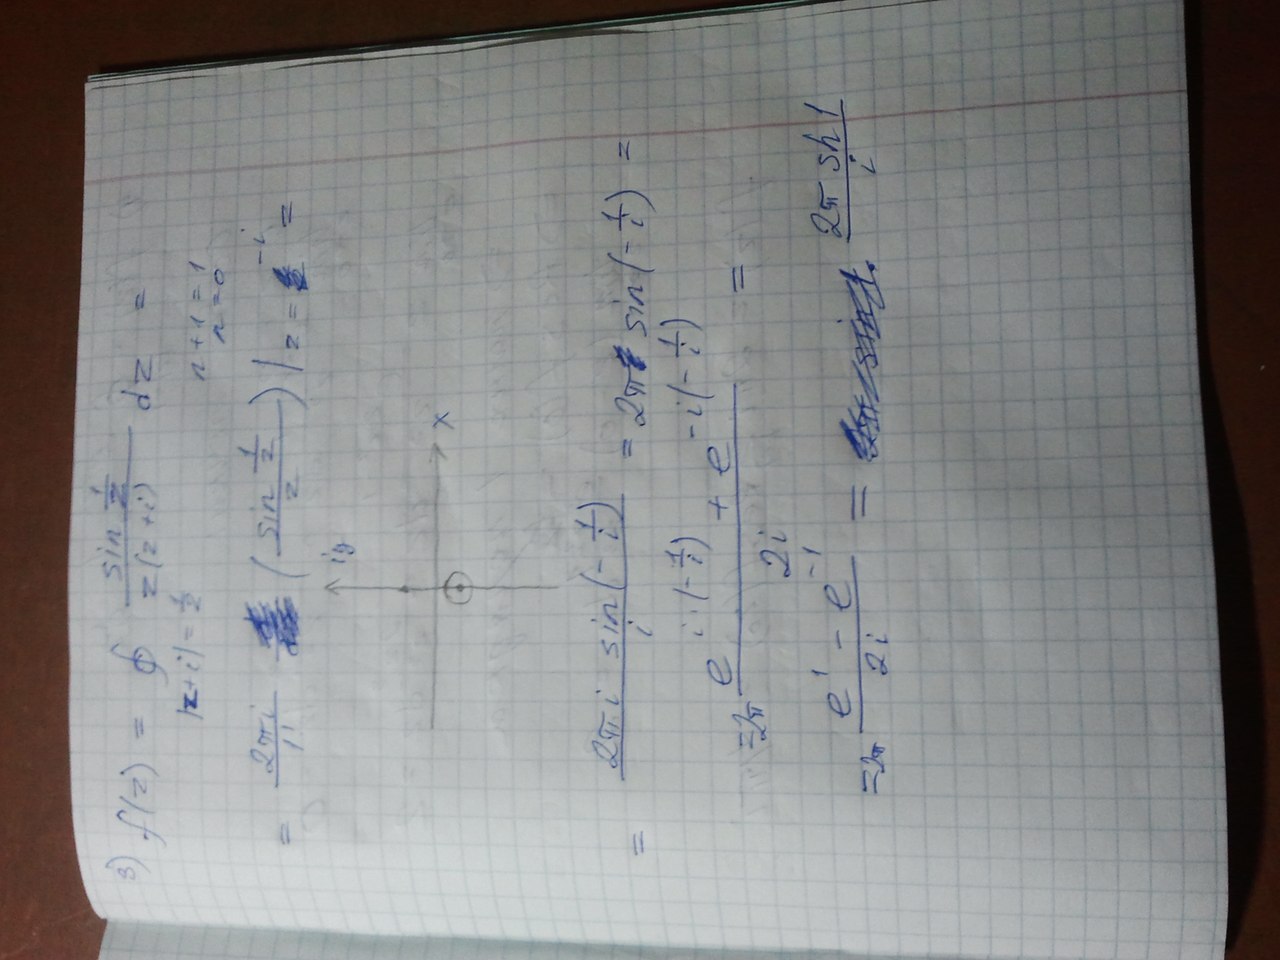 3) f(z) = ∮ sin 1/z / z(z+i) dz =
|z+i|=1/2
n+1=1
n=0
= 2πi / 1! ( sin 1/z / z ) | z = -i =
iy
x
= 2πi sin(-1/i) / i = 2π sin(-1/i) =
=2π e^{i(-1/i)} + e^{-i(-1/i)} / 2i =
=2π e^1 - e^{-1} / 2i = 2π sh 1 / i